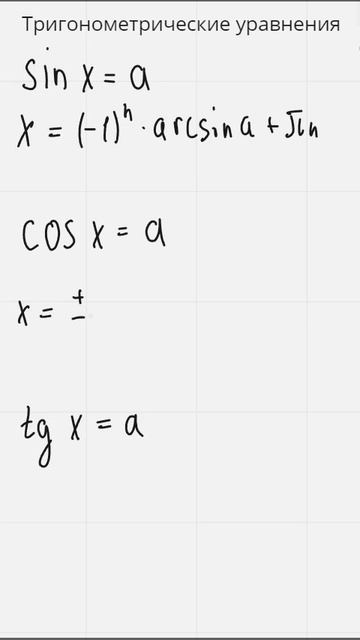 Тригонометрические уравнения
sin x = a
x = (-1)^n · arcsin a + πn
cos x = a
x = ±
tg x = a